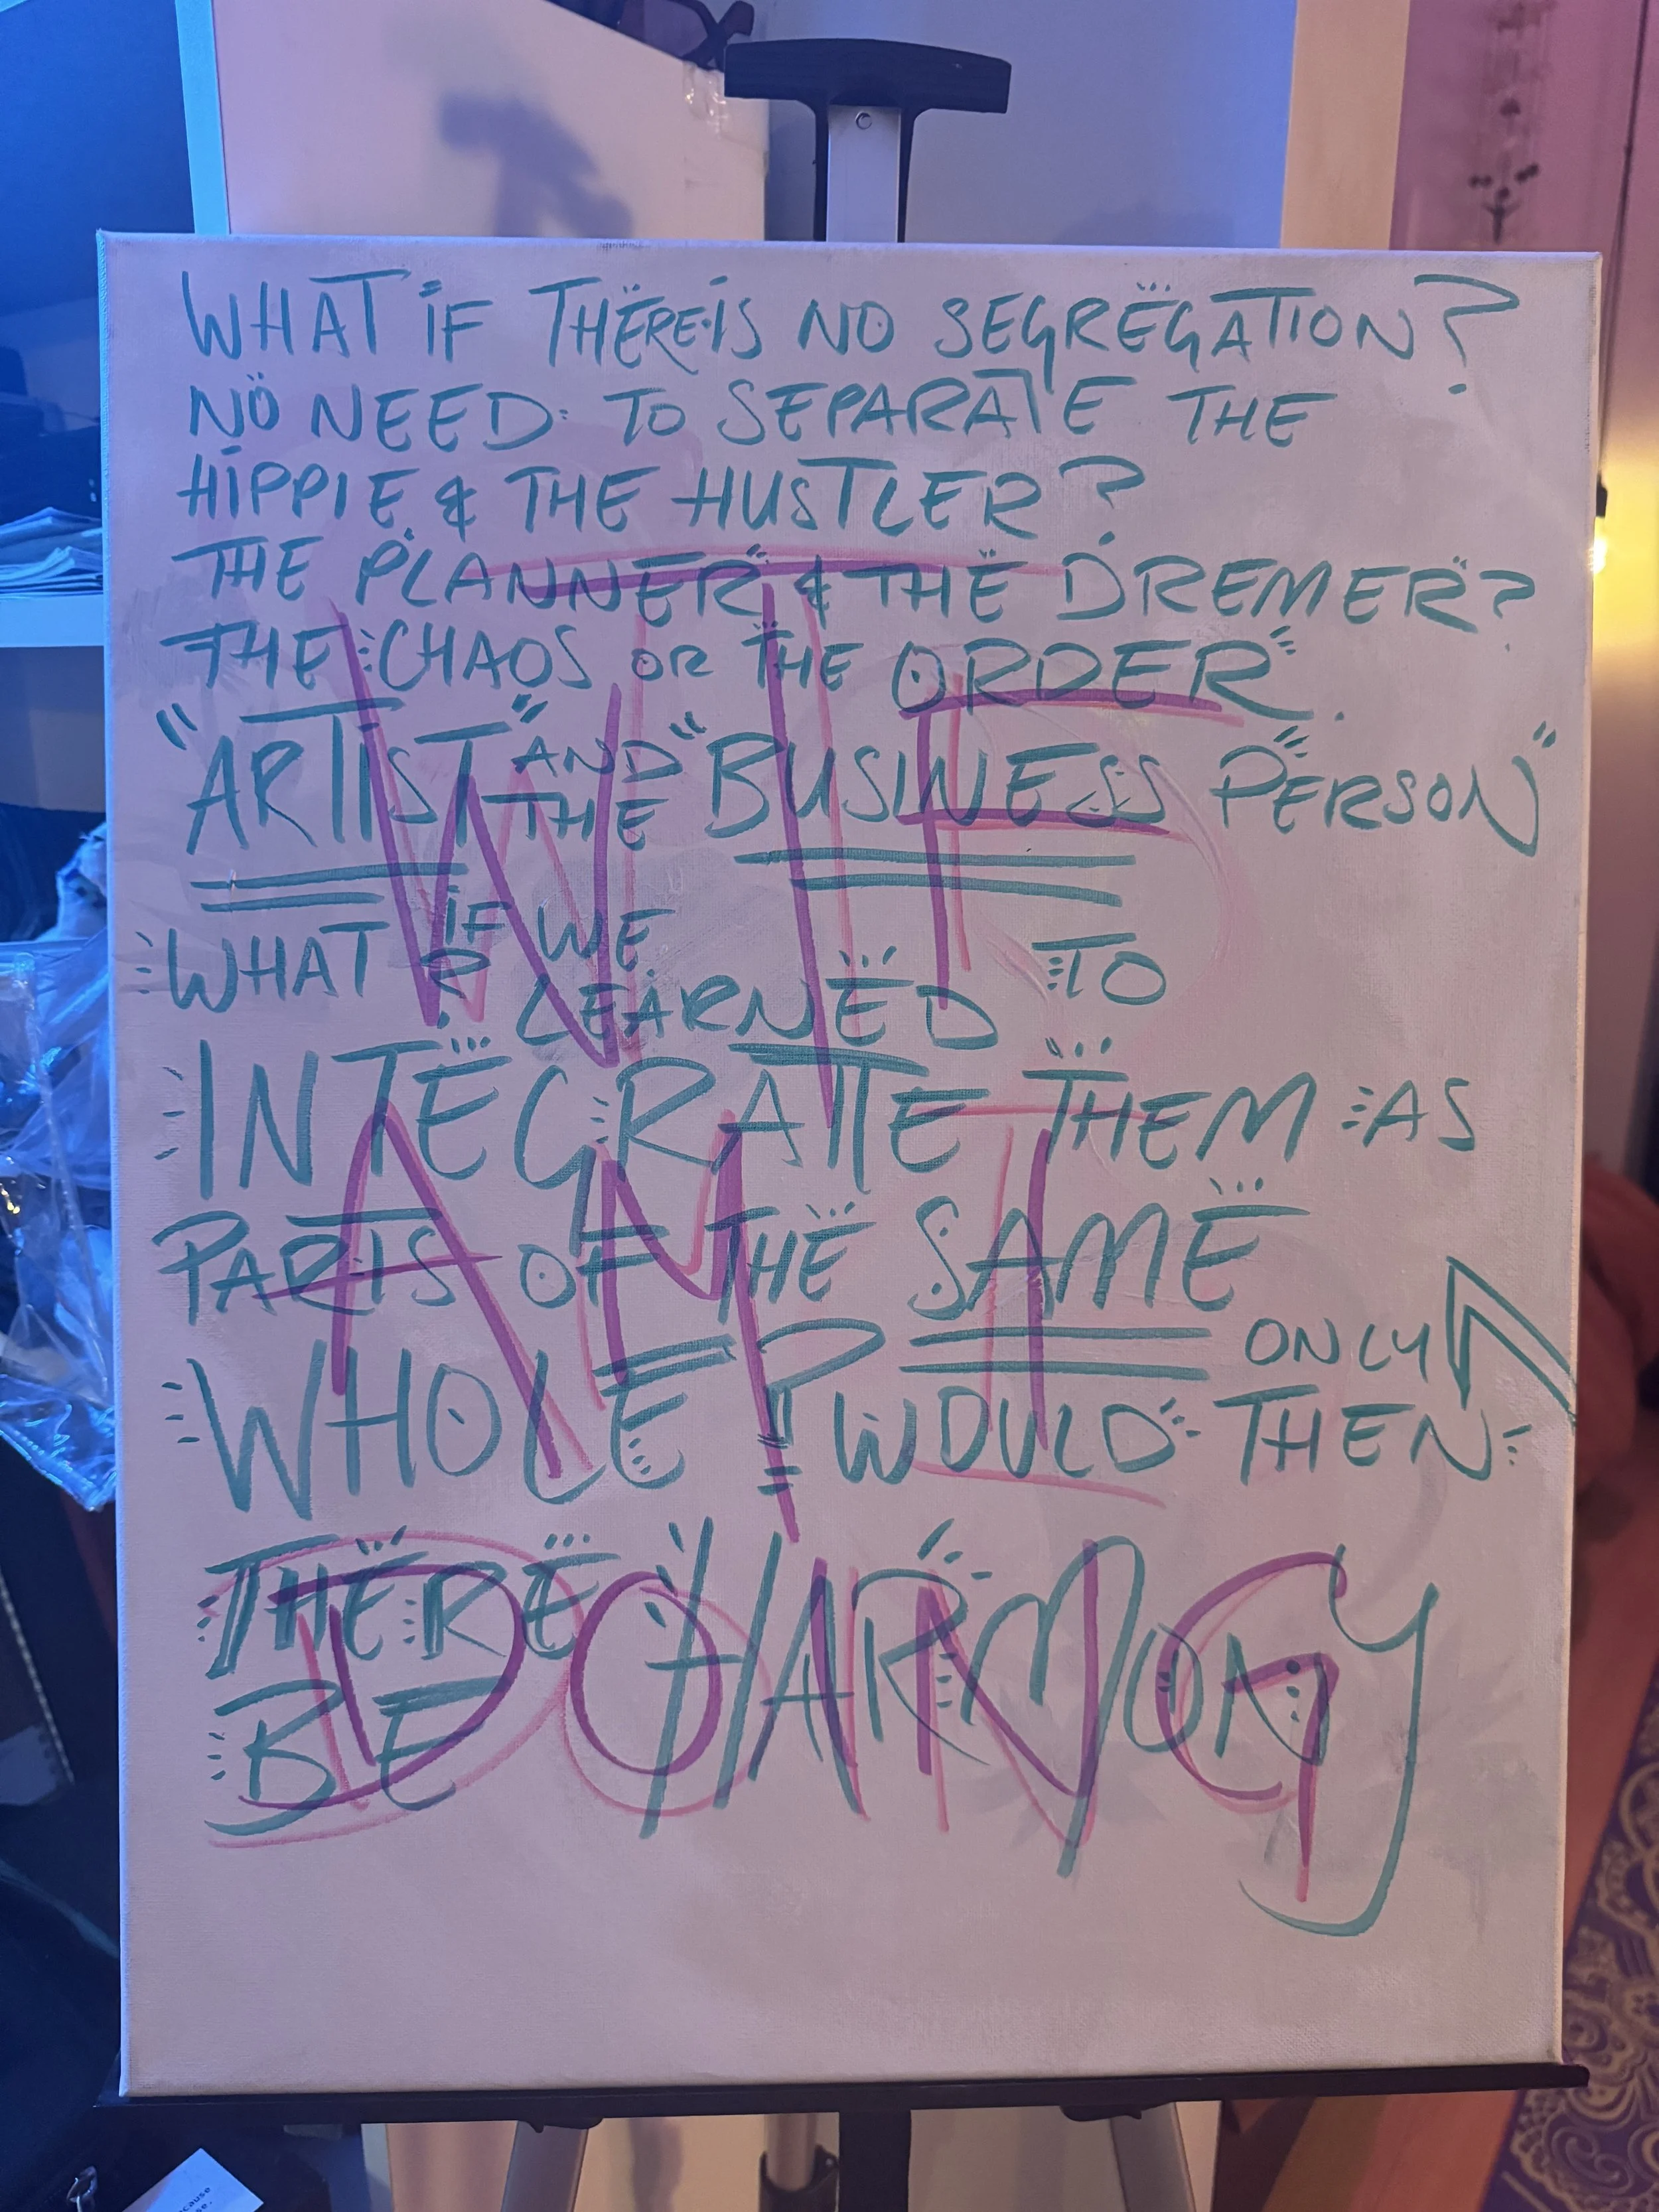 WHAT IF THERE IS NO SEGREGATION?
NO NEED TO SEPARATE THE
HIPPIE & THE HUSTLER?
THE PLANNER & THE DREMER?
THE CHAOS OR THE ORDER.
"ARTIST" AND THE "BUSINESS PERSON"
WHAT IF WE LEARNED TO
INTEGRATE THEM AS
PARTS OF THE SAME
WHOLE? WOULD ONLY THEN
THERE
BE HARMONY
WTF
AM I
DOING
cause
se.